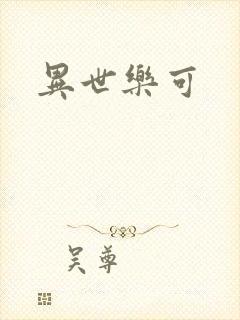 異世樂可
吴尊